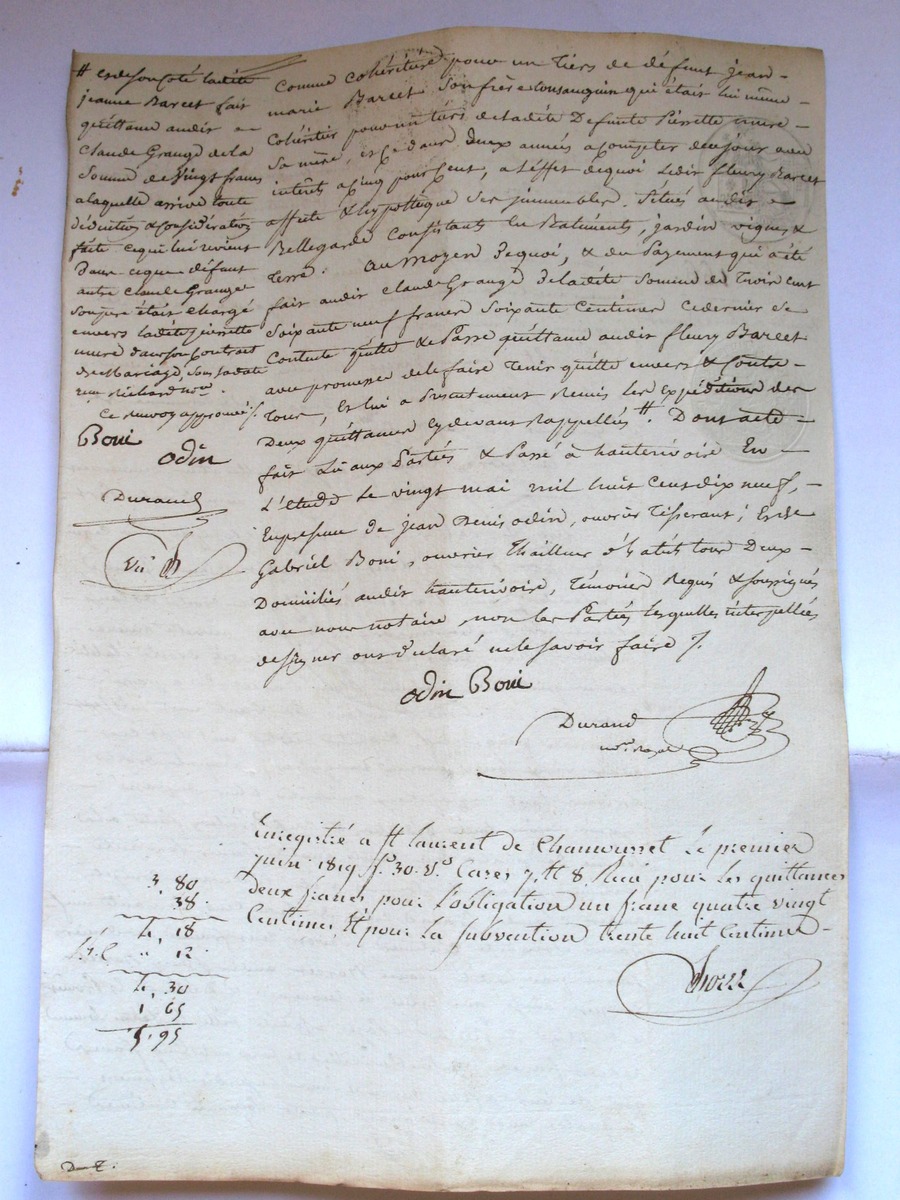 comme cohéritière pour un tiers de défunt jean-
marie Barcet Son frère Consanguin qui était lui même
Cohéritier pour un tiers de ladite Defunte Pierrette
Sa mère, et ce dans Deux années a Compter de ce jour avec
interêts a Cinq pour Cent, a l'effet de quoi ledit fleury Barcet
affecte & hypottèque Ses jmmeubles Situés audit
Bellegarde Consistants en Batiments, jardin vignes &
terre. Au Moyen de quoi, & du Payement qui a été
fait audit claude Grange de ladite Somme de Trois Cent
Soixante neuf francs Soixante Centimes ce dernier Se
Contente quitte & Passe quittance audit fleury Barcet
avec promesse de le faire Tenir quitte envers & Contre
Tous, Et lui a Présentement Remis les Expéditions des
Deux quittances cy devant Rappellés #. Dont acte
fait Lu aux Parties & Passé à hauterivoire En
L'étude Le vingt mai mil huit Cent dix neuf,
En présence de jean Denis odin, ouvrier Tisserant, Et de
Gabriel Boni, ouvrier Thailleur d'habits tous Deux
Domiciliés audit hauterivoire, Témoins Requis & soussignés
avec nous notaire, non les Parties lesquelles interpellées
de signer ont déclaré ne le savoir faire /.
odin Boni
Durand
no.re Royal
# et de Son Coté ladite
jeanne Barcet fait
quittance audit
Claude Grange de la
Somme de Vingt francs
a laquelle arrive toute
déduction & Considération
faite ce qui lui revient
Dans ce que défunt
autre Claude Grange
Son pere était Chargé
envers ladite pierrette
dans Son Contrat
de Mariage
Richard no.re
Ce Renvoy approuvé /.
Boni
odin
Durand
Enregistré a St laurent de Chamousset Le premier
juin 1819 f.o 30 v.o Cases 7 et 8 Reçu pour les quittances
deux francs, pour l'obligation un franc quatre vingt
Centimes et pour la subvention trente huit Centimes
3, 80
38
4, 18
12
4, 30
1 65
5, 95